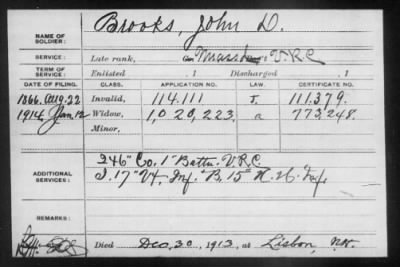 NAME OF SOLDIER: Brooks, John D.
SERVICE: Late rank, V.R.C
TERM OF SERVICE: Enlisted , 1 Discharged , 1
DATE OF FILING. CLASS. APPLICATION NO. CERTIFICATE NO.
1866. Aug. 22 Invalid, 114.111 111.379.
1914, Jan. 12 Widow, 1,020,223. a 773,248.
Minor,
ADDITIONAL SERVICES: 246" Co. 1" Battn. V.R.C.
I. 17" Vt. Inf. B. 15" N. H. Inf.
REMARKS:
Died Dec. 30, 1913, at Lisbon, N.H.